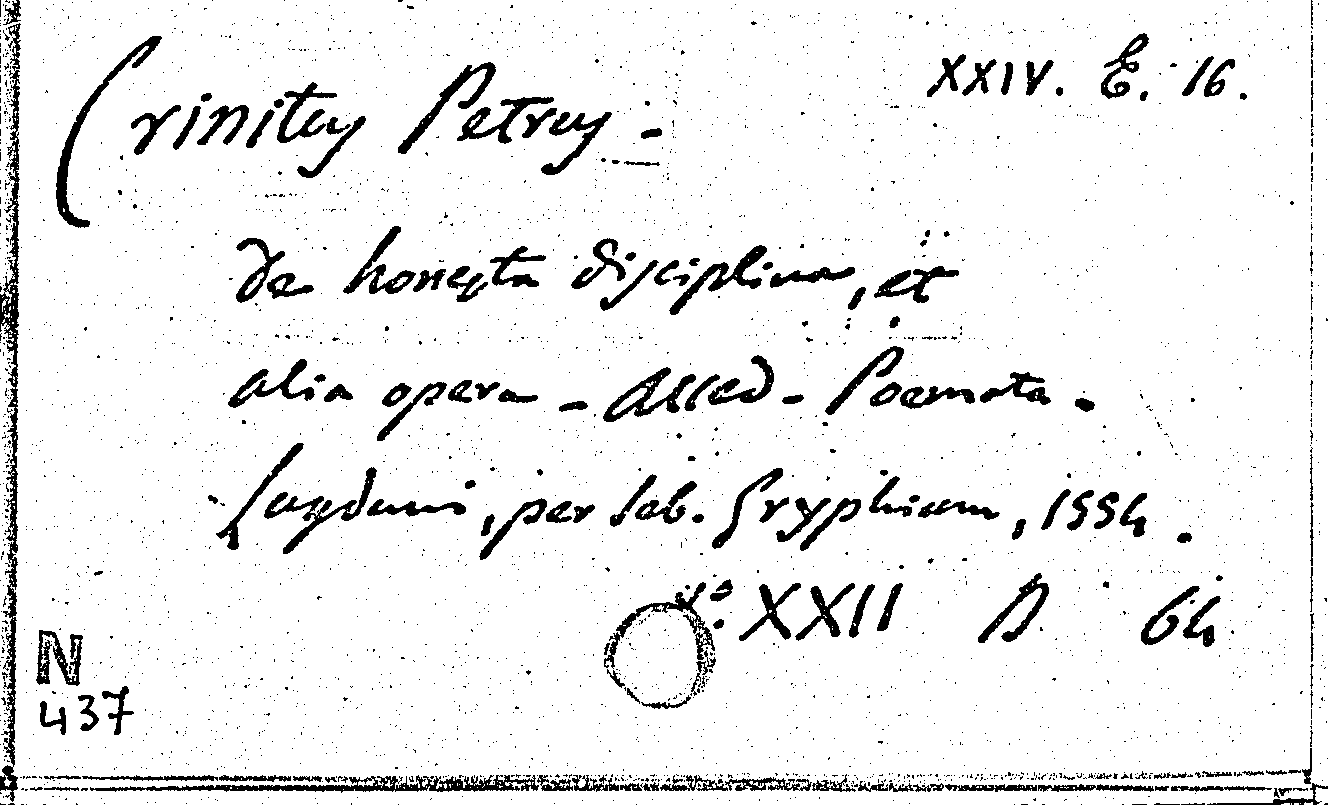 Crinitus Petrus - XXIV. E. 16.
de honesta disciplina, et
alia opera - Acced - Poemata.
Lugduni, per Seb. Gryphium, 1554.
v.° XXII D 64
N
437